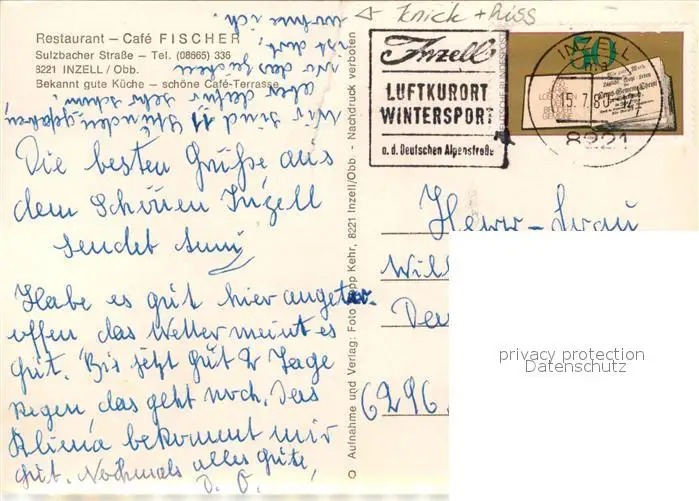 knick + Riss
Restaurant – Café FISCHER
Sulzbacher Straße – Tel. (08665) 336
8221 INZELL / Obb.
Bekannt gute Küche – schöne Café-Terrasse
Wir sind 11 Stunden gefahren,
aber dafür sehr schön.
wo das
ist dort,
wohne ich.
Die besten Grüße aus
dem Schönen Inzell
sendet
Habe es gut hier angetr
offen das Wetter meint es
gut. Bis jetzt gut 2 Tage
Regen das geht noch. Das
Klima bekommt mir
gut. Nochmals alles gute,
D. O.
© Aufnahme und Verlag: Foto Sepp Kehr, 8221 Inzell/Obb. - Nachdruck verboten
Inzell
LUFTKURORT
WINTERSPORT
a. d. Deutschen Alpenstraße
DEUTSCHE BUNDESPOST
50
INZELL
15.7.80
8221
Herr – Frau
6296
privacy protection
Datenschutz